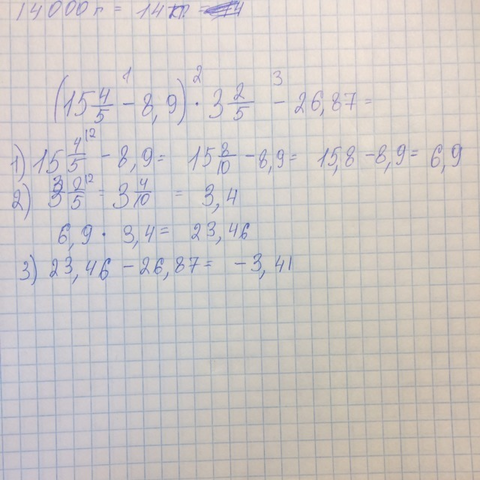 14000г = 14кг =
(15 4/5 - 8,9) · 3 2/5 - 26,87 =
1) 15 4/5 - 8,9 = 15 8/10 - 8,9 = 15,8 - 8,9 = 6,9
2) 3 2/5 = 3 4/10 = 3,4
6,9 · 3,4 = 23,46
3) 23,46 - 26,87 = -3,41